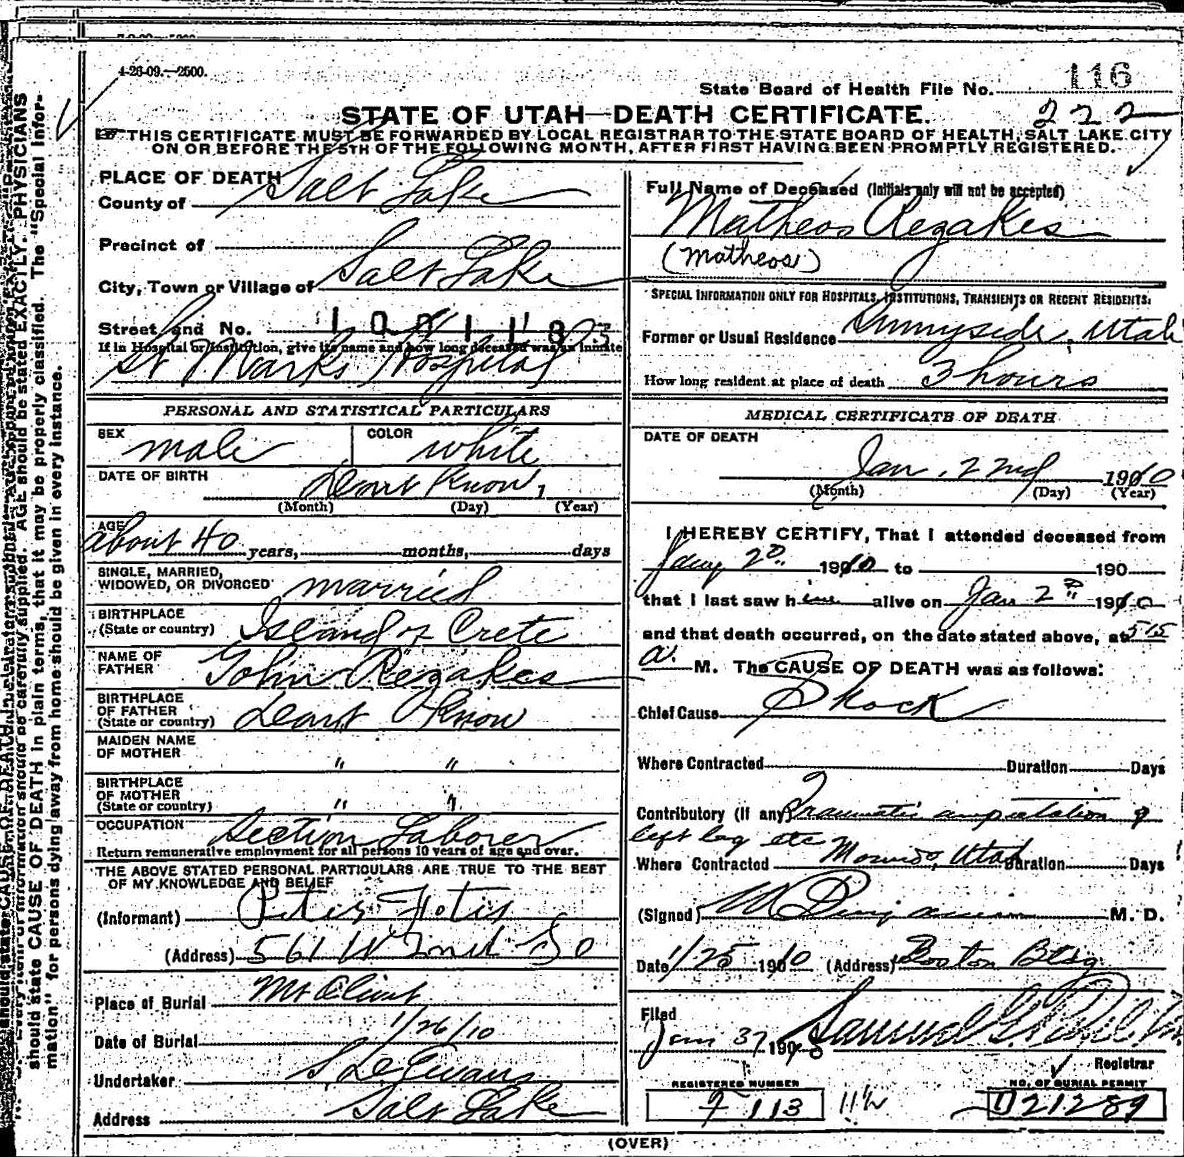 4-26-09.—2500.
State Board of Health File No. 116
222
STATE OF UTAH—DEATH CERTIFICATE.
THIS CERTIFICATE MUST BE FORWARDED BY LOCAL REGISTRAR TO THE STATE BOARD OF HEALTH, SALT LAKE CITY
ON OR BEFORE THE 5TH OF THE FOLLOWING MONTH, AFTER FIRST HAVING BEEN PROMPTLY REGISTERED.
PLACE OF DEATH
County of Salt Lake
Precinct of
City, Town or Village of Salt Lake
Street and No. 1001183
If in Hospital or Institution, give its name and how long deceased was an inmate
St Marks Hospital
PERSONAL AND STATISTICAL PARTICULARS
SEX male COLOR white
DATE OF BIRTH Dont Know
(Month) (Day) (Year)
AGE about 40 years, months, days
SINGLE, MARRIED,
WIDOWED, OR DIVORCED married
BIRTHPLACE
(State or country) Island of Crete
NAME OF
FATHER John Rezakes
BIRTHPLACE
OF FATHER
(State or country) Dont Know
MAIDEN NAME
OF MOTHER " "
BIRTHPLACE
OF MOTHER
(State or country) " "
OCCUPATION Section Laborer
Return remunerative employment for all persons 10 years of age and over.
THE ABOVE STATED PERSONAL PARTICULARS ARE TRUE TO THE BEST
OF MY KNOWLEDGE AND BELIEF
(Informant) Peter Fotis
(Address) 561 W 2nd So
Place of Burial Mt Olivet
Date of Burial 1/26/10
Undertaker S D Evans
Address Salt Lake
Full Name of Deceased (Initials only will not be accepted)
Matheos Rezakes
(Matheos)
SPECIAL INFORMATION ONLY FOR HOSPITALS, INSTITUTIONS, TRANSIENTS OR RECENT RESIDENTS.
Former or Usual Residence Sunnyside, Utah
How long resident at place of death 3 hours
MEDICAL CERTIFICATE OF DEATH
DATE OF DEATH
Jan. 22nd 1910
(Month) (Day) (Year)
I HEREBY CERTIFY, That I attended deceased from
1910 to 190
that I last saw him alive on Jan 1910
and that death occurred, on the date stated above, at 515
a. M. The CAUSE OF DEATH was as follows:
Chief Cause Shock
Where Contracted Duration Days
Contributory (if any) Traumatic amputation of
left leg etc
Where Contracted Utah Duration Days
(Signed) M. D.
Date 1/25 1910 (Address) Boston Bldg
Filed
Jan 190 Samuel G. Paul
Registrar
REGISTERED NUMBER
113
NO. OF BURIAL PERMIT
D21289
(OVER)
should state CAUSE OF DEATH in plain terms, that it may be properly classified. The "Special Infor-
mation" for persons dying away from home should be given in every instance.